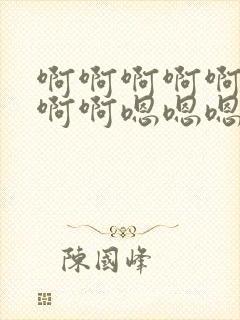 啊啊啊啊啊
啊啊嗯嗯嗯
陳國峰